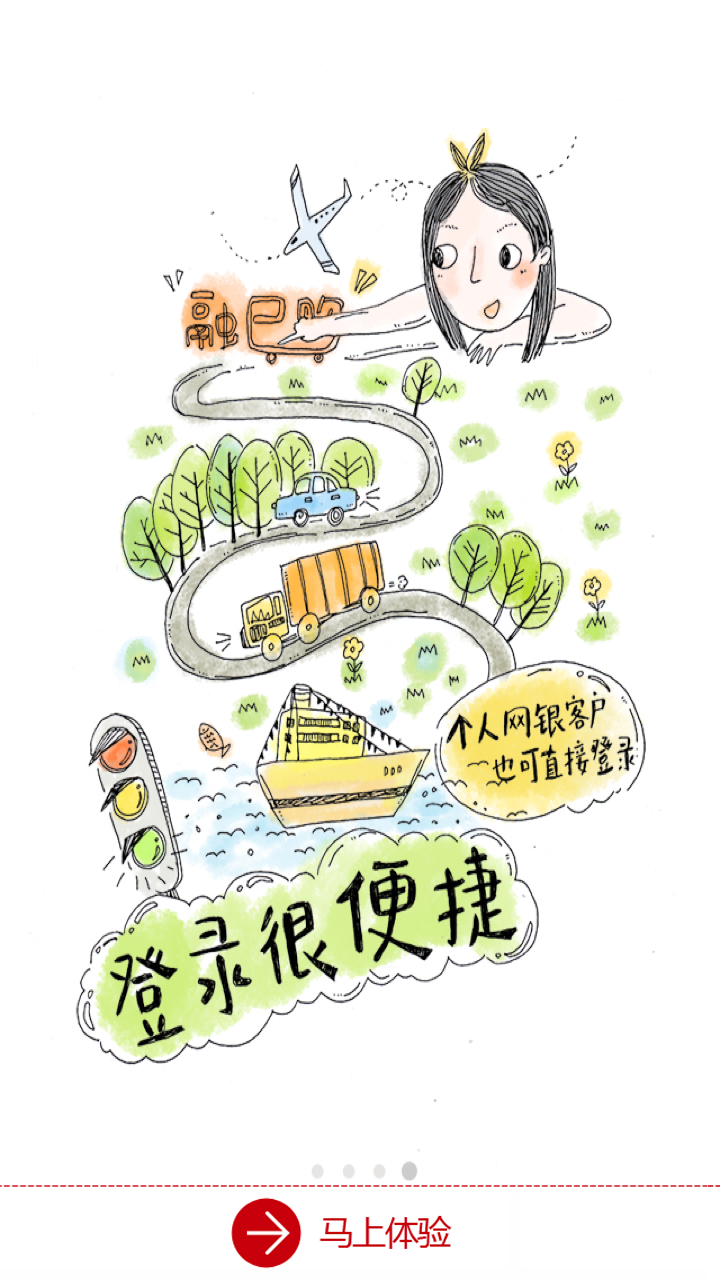 融e购
个人网银客户
也可直接登录
登录很便捷
马上体验